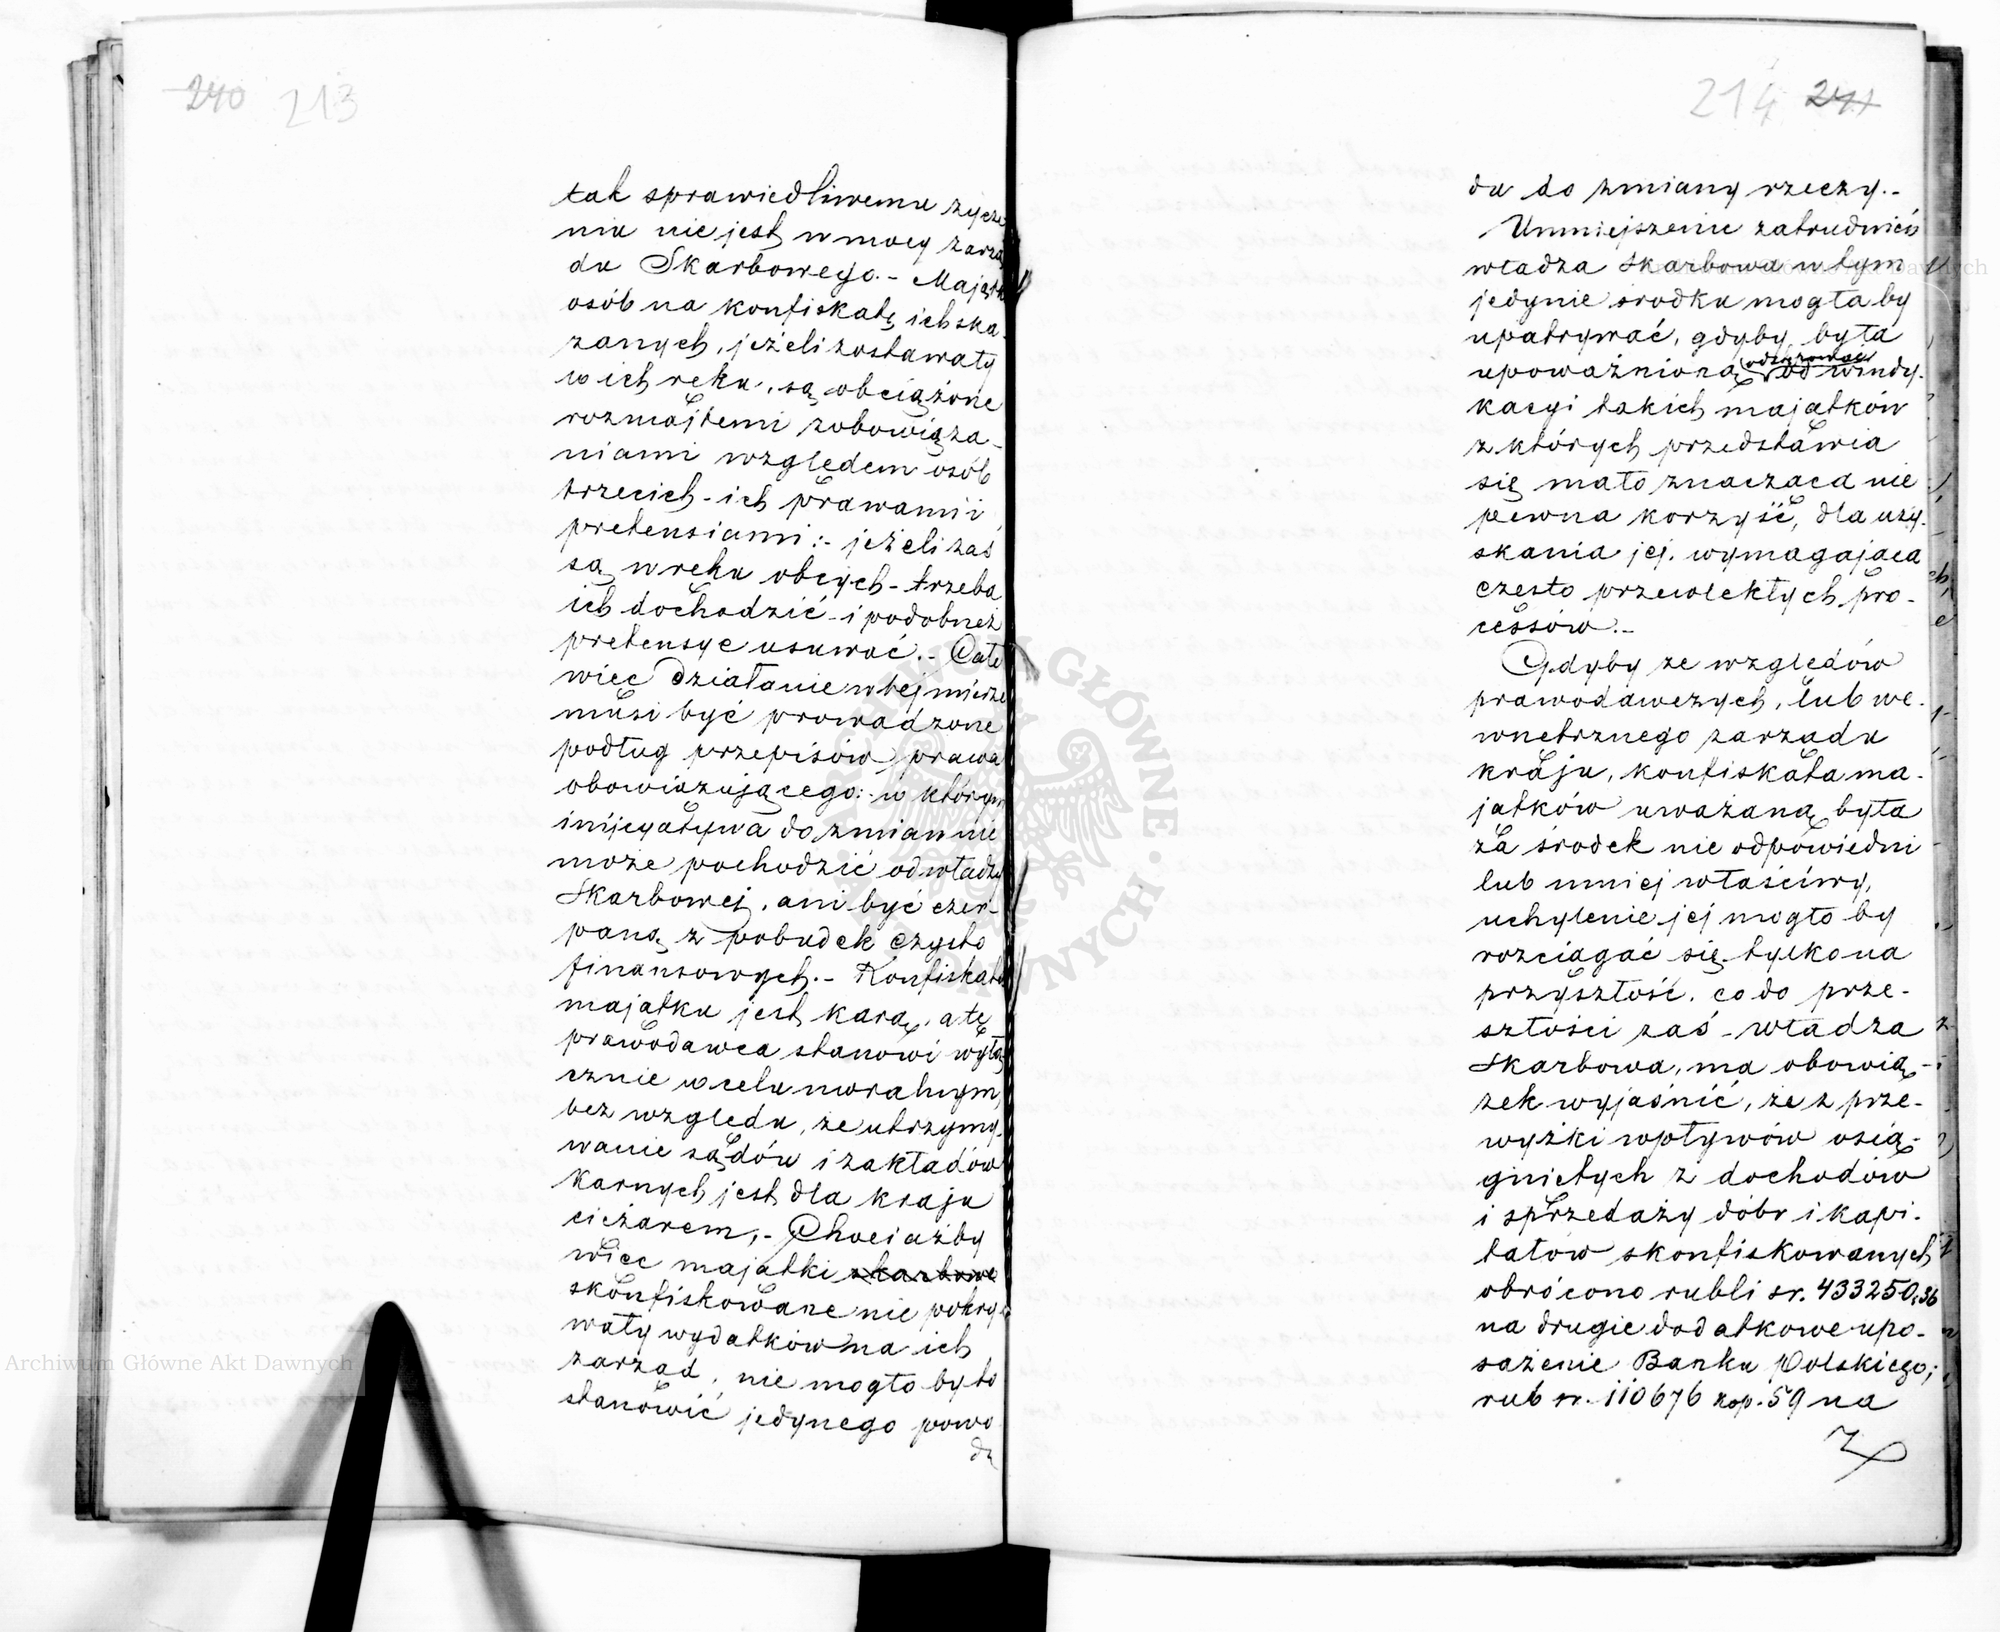 240 213
tak sprawiedliwemu życze
niu nie jest w mocy zarzą
du Skarbowego.- Majątki
osób na konfiskatę ich ska
zanych, jeżeli zostawały
w ich ręku, są obciążone
rozmajtemi zobowiąza-
niami względem osób
trzecich - ich prawami i
pretensiami :- jeżeli zaś
są w ręku obcych - trzeba
ich dochodzić - i podobneż
pretensye usuwać.- Całe
więc działanie w tej mierze
musi być prowadzone
podług przepisów prawa
obowiązującego:- w którym
inijcyatywa do zmian nie
może pochodzić od władzy
Skarbowej, ani być czer-
paną z pobudek czysto
finansowych.- Konfiskata
majątku jest karą, a tę
prawodawca stanowi wyłą
cznie w celu moralnym,
bez względu, że utrzymy-
wanie sądów i zakładów
karnych jest dla kraju
ciężarem,- Chociażby
więc majątki skarbowe
skonfiskowane nie pokry
wały wydatków na ich
zarząd, nie mogło by to
stanowić jedynego powo
du
214 241
du do zmiany rzeczy.-
Umniejszenie zatrudnień
władza Skarbowa w tym
jedynie środku mogła by
upatrywać, gdyby była
upoważnioną od windy-
kacyi takich majątków
z których przedstawia
się mało znacząca nie
pewna korzyść, dla uzy-
skania jej, wymagająca
często przewlekłych pro-
cessów.-
Gdyby ze względów
prawodawczych, lub we-
wnętrznego zarządu
kraju, konfiskata ma-
jątków uważaną była
za środek nie odpowiedni
lub mniej właściwy,
uchylenie jej mogło by
rozciągać się tylko na
przyszłość, co do prze-
szłości zaś - władza
Skarbowa, ma obowią-
zek wyjaśnić, że z prze-
wyżki wpływów osią-
gniętych z dochodów
i sprzedaży dóbr i kapi-
tałów skonfiskowanych
obrócono rubli sr. 433250,36
na drugie dodatkowe upo-
sażenie Banku Polskiego;
rub sr. 110676 kop. 59 na
Archiwum Główne Akt Dawnych
ARCHIWUM GŁÓWNE AKT DAWNYCH